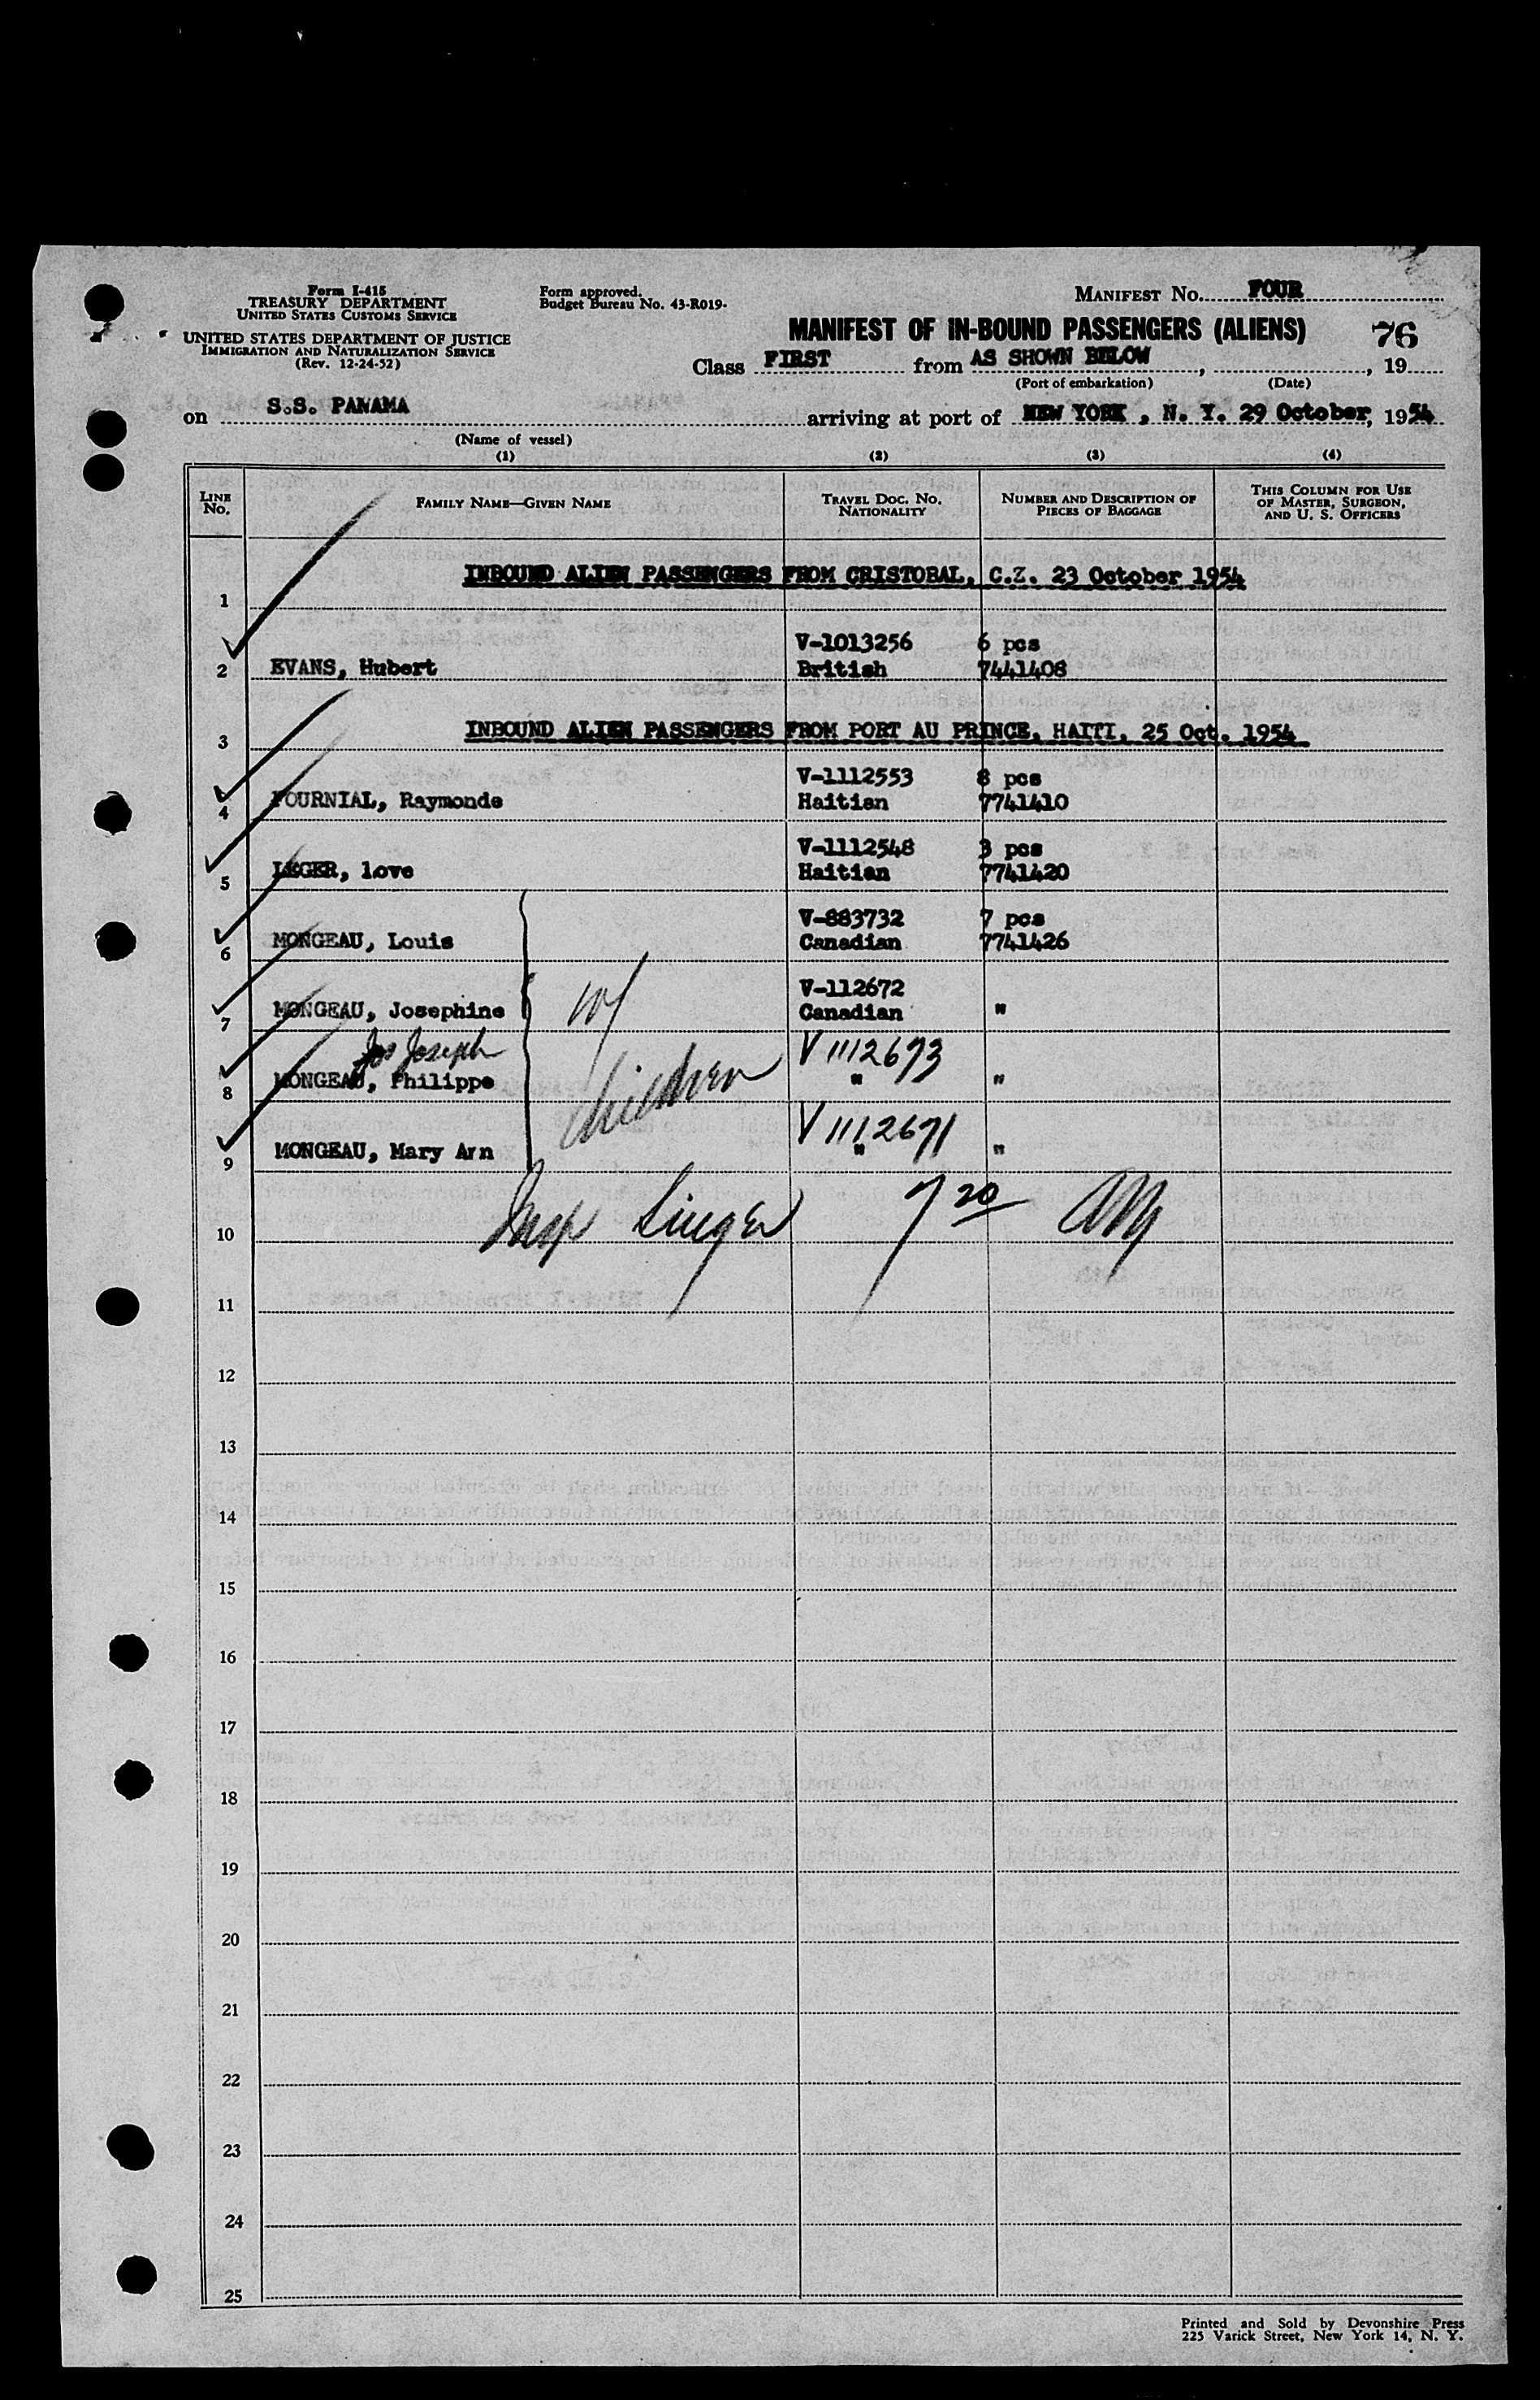 Form I-415
TREASURY DEPARTMENT
UNITED STATES CUSTOMS SERVICE
UNITED STATES DEPARTMENT OF JUSTICE
IMMIGRATION AND NATURALIZATION SERVICE
(Rev. 12-24-52)
Form approved.
Budget Bureau No. 43-R019.
MANIFEST No. FOUR
MANIFEST OF IN-BOUND PASSENGERS (ALIENS) 76
Class FIRST from AS SHOWN BELOW, , 19
(Port of embarkation) (Date)
on S.S. PANAMA arriving at port of NEW YORK , N. Y. 29 October, 1954
(Name of vessel)
(1) (2) (3) (4)
LINE No. FAMILY NAME—GIVEN NAME TRAVEL DOC. No. NATIONALITY NUMBER AND DESCRIPTION OF PIECES OF BAGGAGE THIS COLUMN FOR USE OF MASTER, SURGEON, AND U. S. OFFICERS
1 INBOUND ALIEN PASSENGERS FROM CRISTOBAL, C.Z. 23 October 1954
V-1013256 6 pcs
2 EVANS, Hubert British 7441408
3 INBOUND ALIEN PASSENGERS FROM PORT AU PRINCE, HAITI, 25 Oct. 1954
V-1112553 8 pcs
4 FOURNIAL, Raymonde Haitian 7741410
V-1112548 3 pcs
5 LEGER, love Haitian 7741420
V-883732 7 pcs
6 MONGEAU, Louis Canadian 7741426
V-112672
7 MONGEAU, Josephine w/ Canadian "
Jos Joseph V 1112673
8 MONGEAU, Philippe children " "
V 1112671
9 MONGEAU, Mary Ann " "
10 Insp Singer 7 20
11
12
13
14
15
16
17
18
19
20
21
22
23
24
25
Printed and Sold by Devonshire Press
225 Varick Street, New York 14, N. Y.